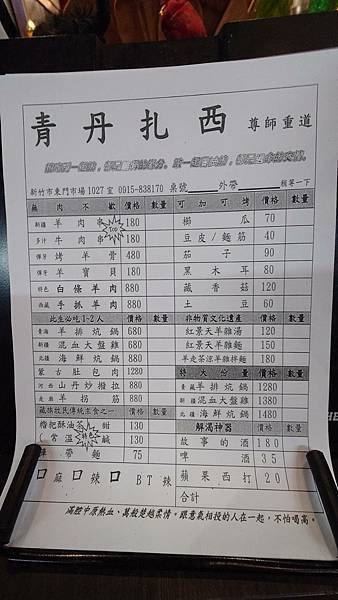 青丹扎西 尊師重道
新竹市東門市場1027室 0915-838170 桌號 外帶 稍等一下
無肉不歡 價格 數量 可加可烤 價格 數量
新疆 羊肉串 180 櫛瓜 70
多汁 牛肉串 180 豆皮/麵筋 40
彈牙 烤羊骨 480 茄子 90
彈牙 羊寶貝 180 黑木耳 80
特色 白條羊肉 680 藏香菇 120
西藏 手抓羊肉 680 土豆 60
此生必吃1-2人 價格 數量 非物質文化遺產 價格 數量
青海 羊排炕鍋 680 紅景天羊雜湯 120
新疆 混血大盤雞 680 紅景天羊雜麵 150
北疆 海鮮炕鍋 880 羊走茶涼羊雜拌麵 180
蒙古肚包肉 1280 特大份量 價格 數量
河西 山丹炒撥拉 880 青藏 羊排炕鍋 1280
走廊 羊肋筋 880 新疆 混血大盤雞 1380
藏族牧民傳統主食之一 價格 數量 北疆 海鮮炕鍋 1480
糌粑酥油茶 甜 130 解渴神器
(常溫) 鹹 130 故事的酒 180
單帶麵 75 啤酒 35
麻 辣 BT辣 蘋果西打 20
合計
滿腔中原熱血、萬般楚越柔情。跟意氣相投的人在一起,不怕喝高。